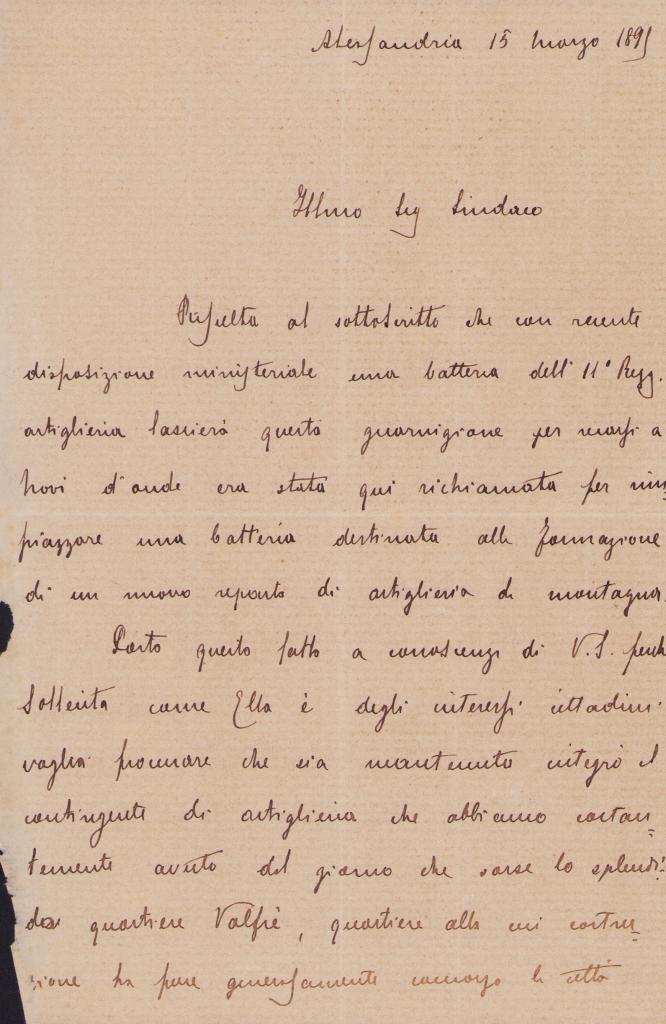 Alessandria 15 Marzo 1895
Illmo Sig Sindaco
Risulta al sottoscritto che con recente
disposizione ministeriale una batteria dell' 11° Regg.
artiglieria lascierà questa guarnigione per recarsi a
Novi d'onde era stata qui richiamata per rim=
piazzare una batteria destinata alla formazione
di un nuovo reparto di artiglieria da montagna.
Porto questo fatto a conoscenza di V.S. perchè
sollecita come Ella è degli interessi cittadini
voglia procurare che sia mantenuto integro il
contingente di artiglieria che abbiamo costan=
temente avuto dal giorno che sorse lo splendi=
do quartiere Valfrè, quartiere alla cui costru=
zione ha pure generosamente concorso la città